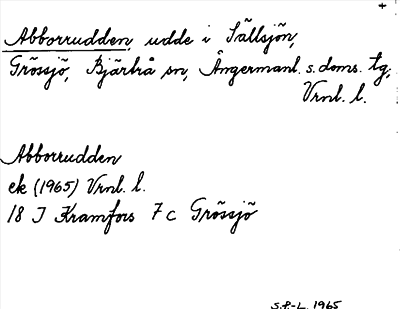 +
Abborrudden, udde i Sällsjön,
Grössjö, Bjärtrå sn, Ångermanl. s. doms. tg,
Vrnl. l.
Abborrudden
ek (1965) Vrnl. l.
18 J Kramfors 7 c Grössjö
S.P-L. 1965